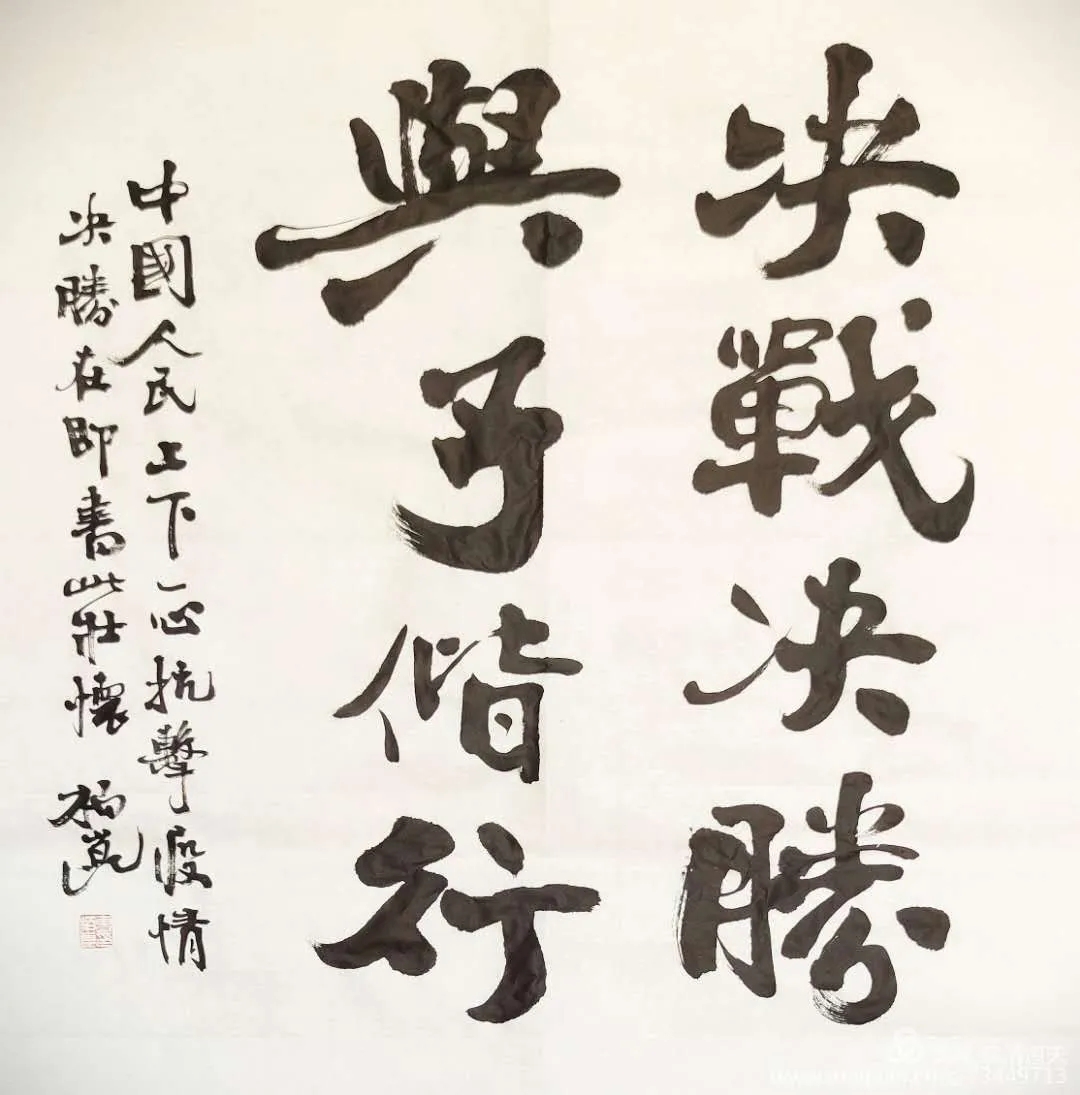 决戰决勝
與予偕行
中國人民上下一心抗擊疫情
决勝在即書此壯懷 柏